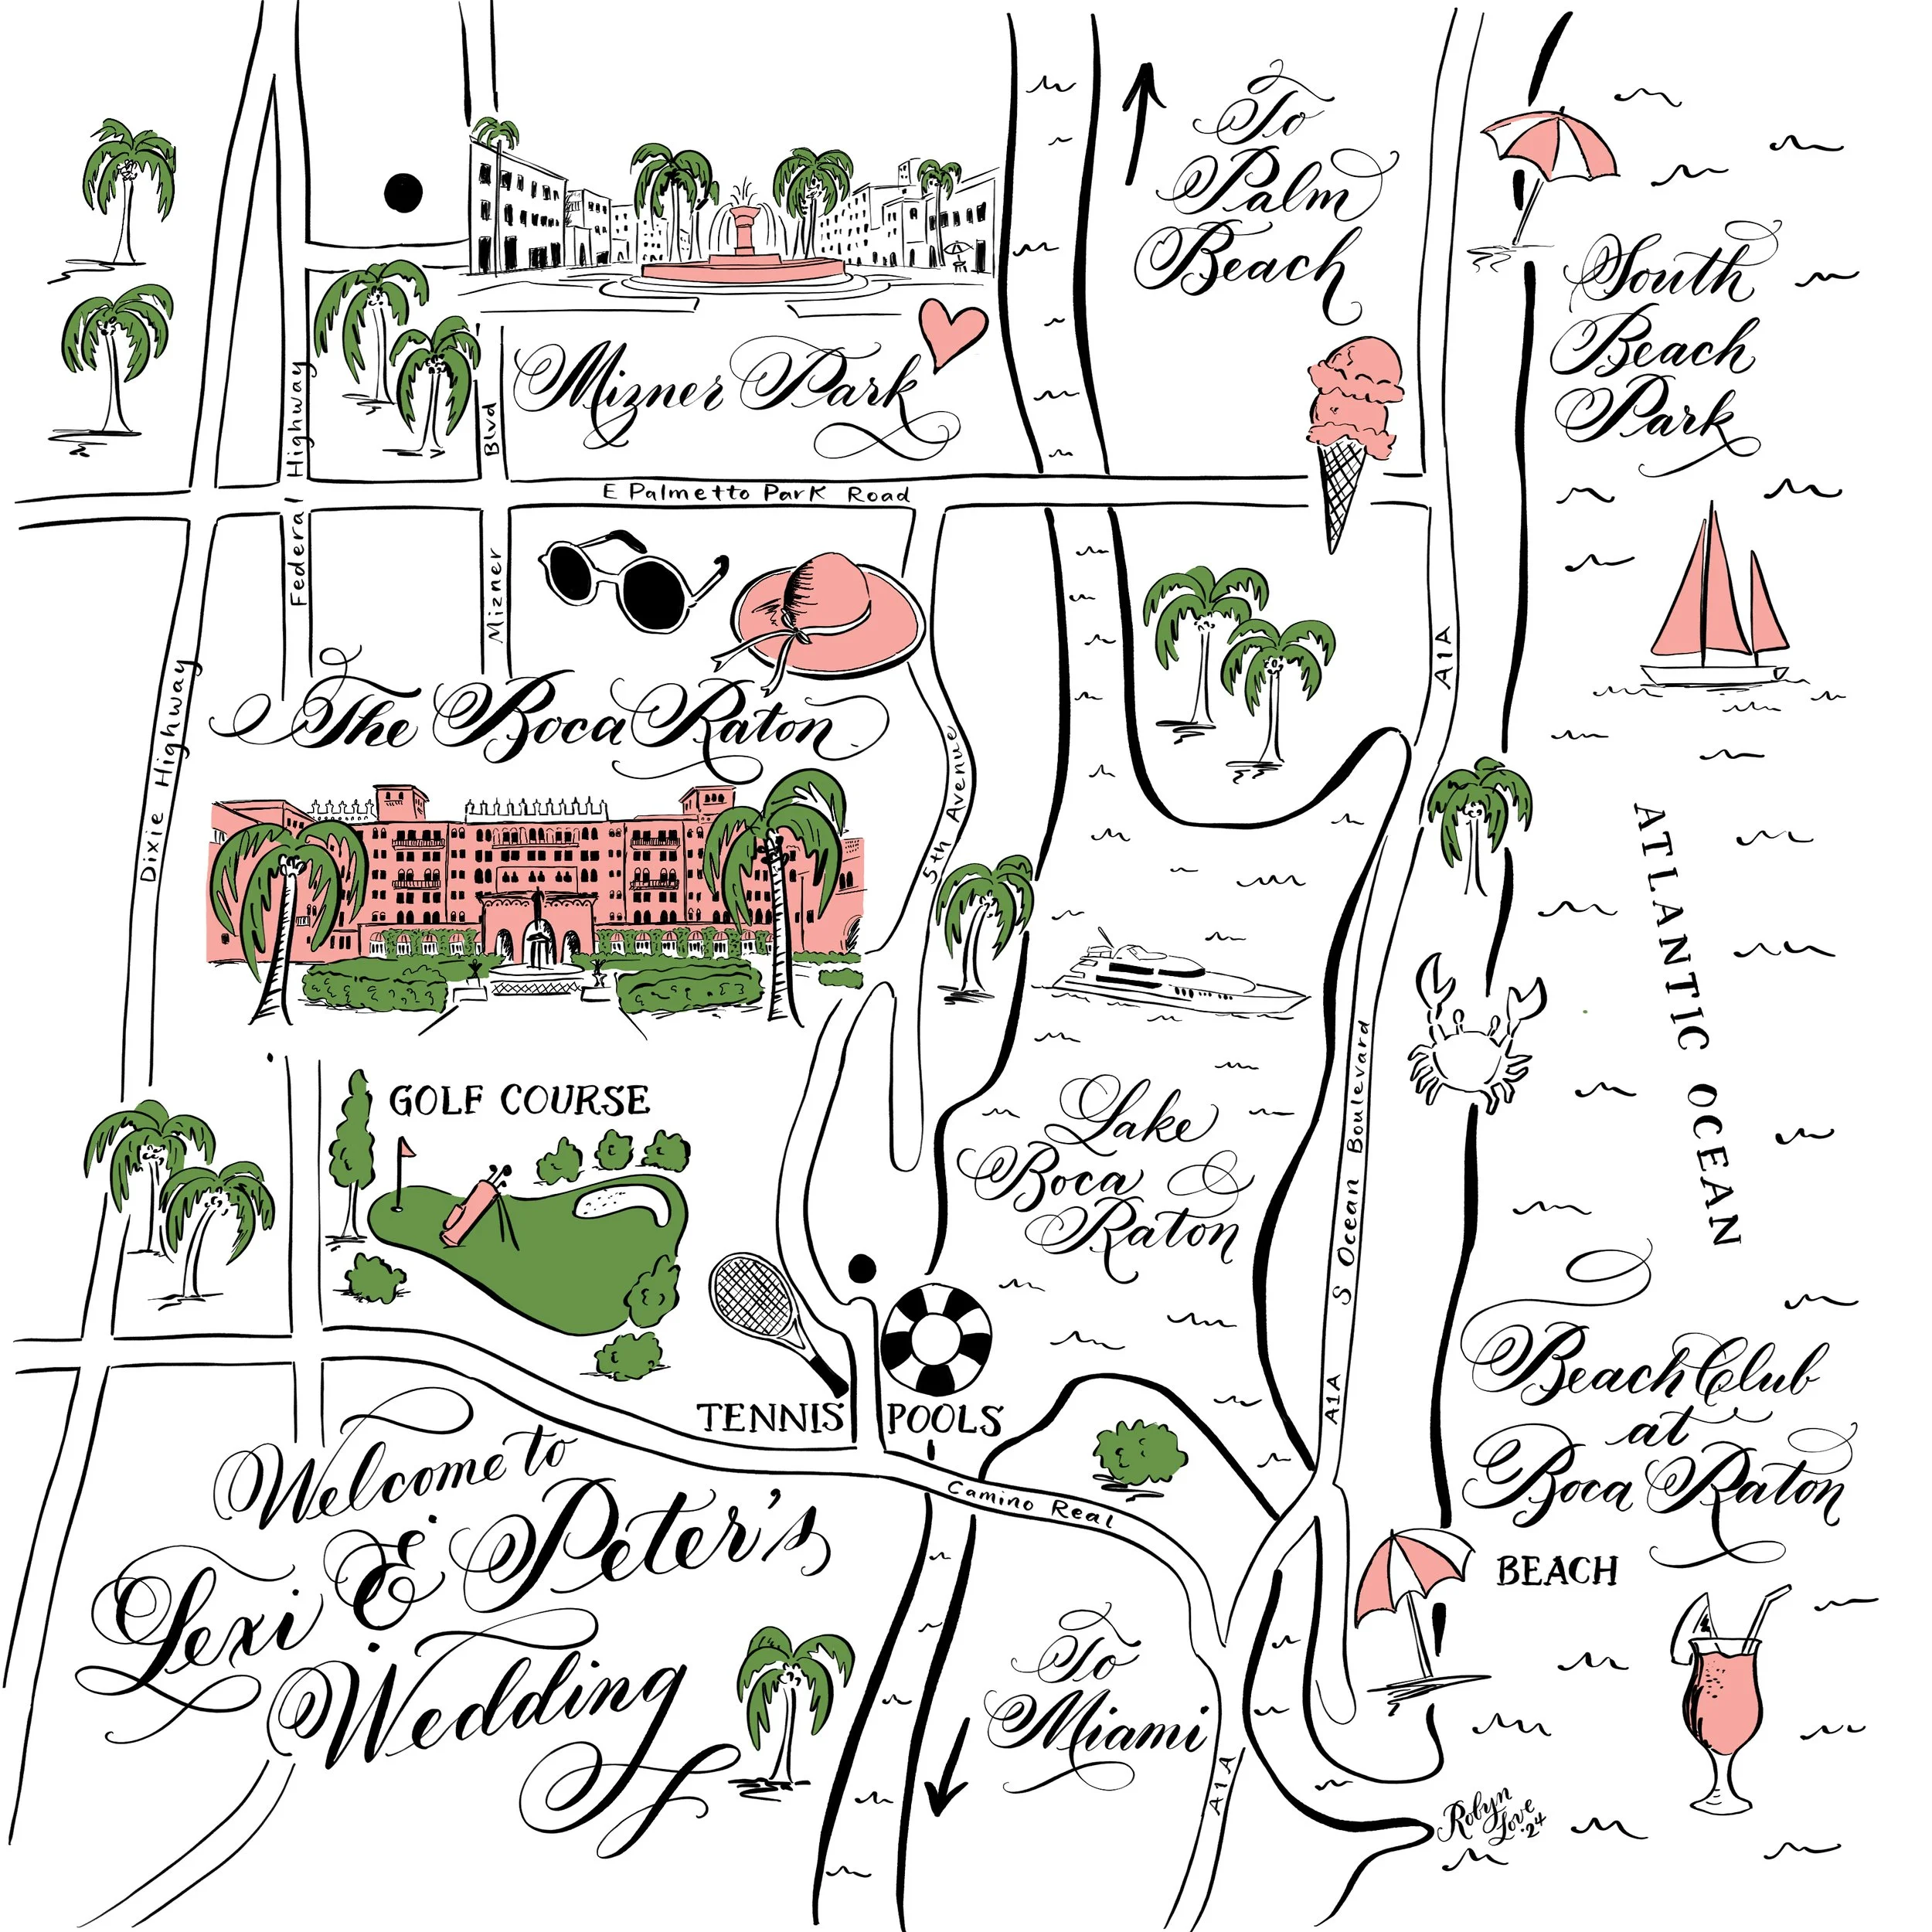 To
Palm
Beach
South
Beach
Park
Mizner Park
Federal Highway
Mizner Blvd
E Palmetto Park Road
A1A
Dixie Highway
The Boca Raton
5th Avenue
ATLANTIC OCEAN
GOLF COURSE
Lake
Boca
Raton
S Ocean Boulevard
A1A
TENNIS
POOLS
Beach Club
at
Boca Raton
BEACH
Camino Real
Welcome to
Lexi & Peter's
Wedding
To
Miami
A1A
Robyn
Love
'24